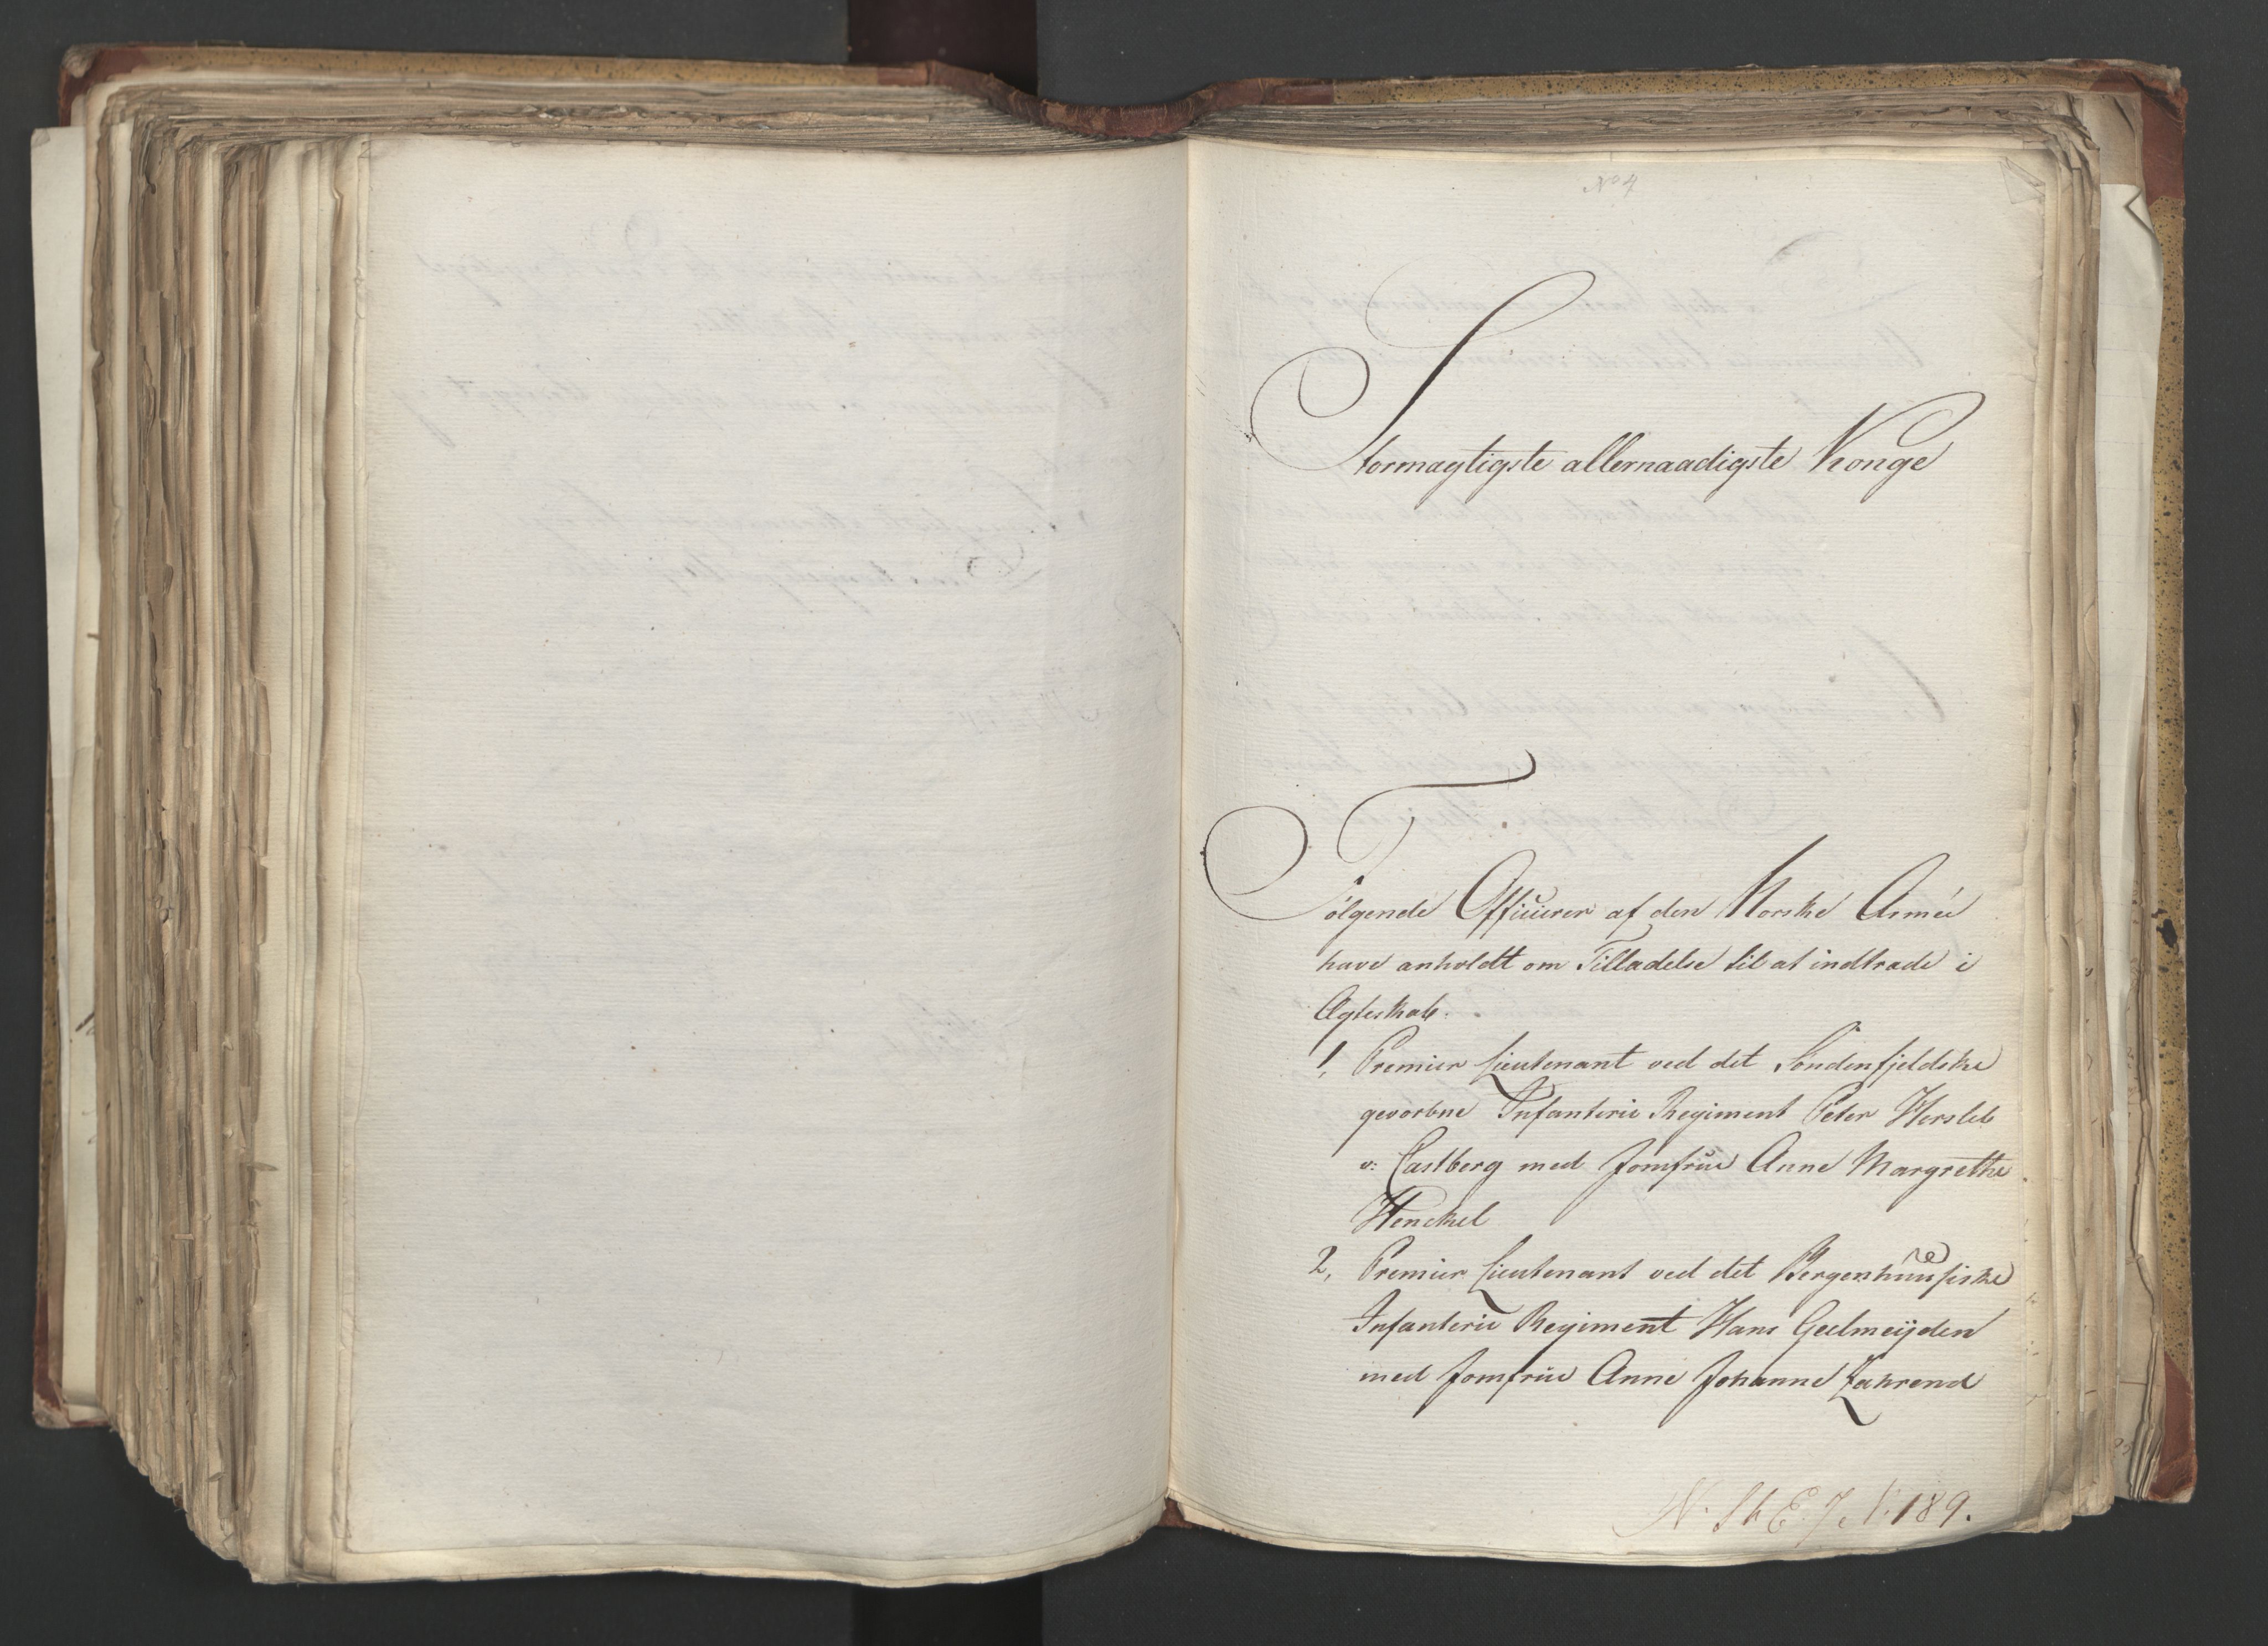 No 4
Stormagtigste allernaadigste Konge
Følgende Officierer af den Norske Armée
have anholdt om Tilladelse til at indtræde i
Ægteskab.
1, Premier Lieutenant ved det Søndenfjeldske
gevorbne Infanterie Regiment Peter Hersleb
v: Castberg med Jomfrue Anne Margrethe
Henckel
2, Premier Lieutenant ved det Bergenhuusiske
Infanterie Regiment Hans Geelmeijden
med Jomfrue Anne Johanne
N. St. E. J. N: 189.